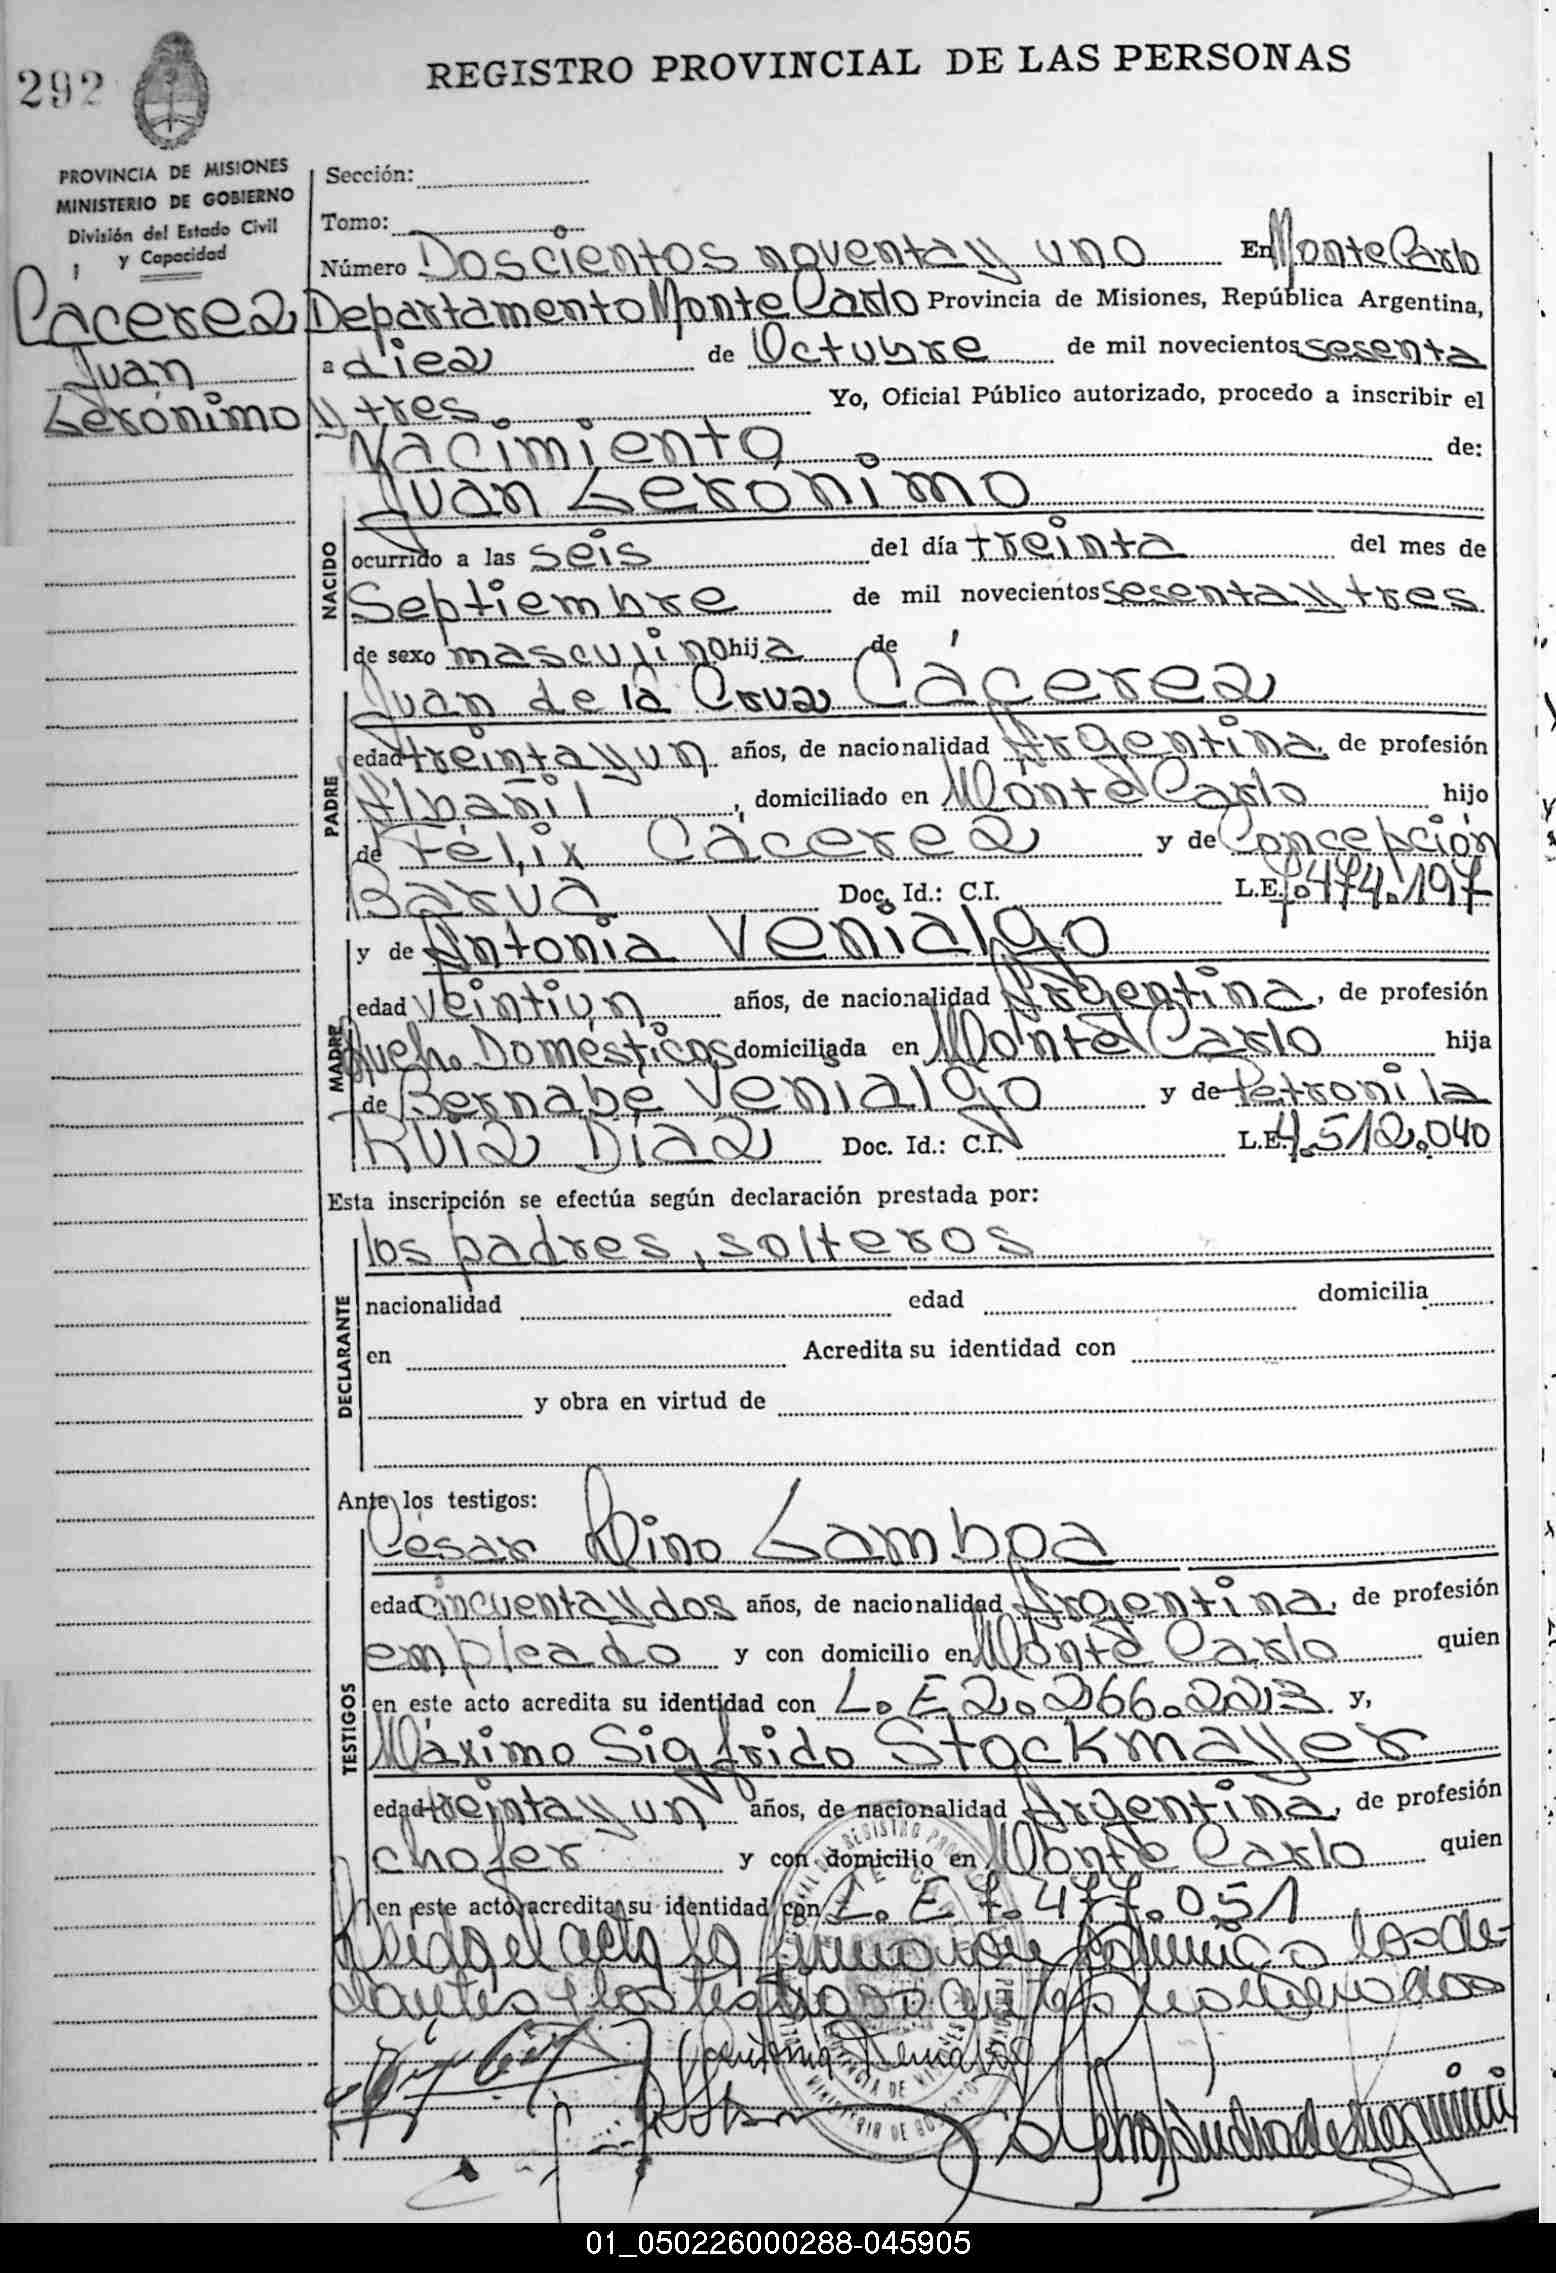 292
REGISTRO PROVINCIAL DE LAS PERSONAS
PROVINCIA DE MISIONES
MINISTERIO DE GOBIERNO
División del Estado Civil
y Capacidad
Cácerez
Juan
Gerónimo
Sección:
Tomo:
Número Doscientos noventa y uno En Monte Carlo
Departamento Monte Carlo Provincia de Misiones, República Argentina,
a diez de Octubre de mil novecientos sesenta
y tres. Yo, Oficial Público autorizado, procedo a inscribir el
Nacimiento de:
Juan Gerónimo
NACIDO
ocurrido a las seis del día treinta del mes de
Septiembre de mil novecientos sesenta y tres
de sexo masculino hija de
Juan de la Cruz Cácerez
PADRE
edad treinta y un años, de nacionalidad Argentina, de profesión
Albañil, domiciliado en Monte Carlo hijo
de Félix Cácerez y de Concepción
Barúa Doc. Id.: C.I. L.E. 7.474.197
y de Antonia Venialgo
MADRE
edad veintiún años, de nacionalidad Argentina, de profesión
Queh. Domésticos domiciliada en Monte Carlo hija
de Bernabé Venialgo y de Petronila
Ruiz Díaz Doc. Id.: C.I. L.E. 4.512.040
Esta inscripción se efectúa según declaración prestada por:
los padres, solteros
DECLARANTE
nacionalidad edad domicilia
en Acredita su identidad con
y obra en virtud de
Ante los testigos:
César Dino Gamboa
TESTIGOS
edad cincuenta y dos años, de nacionalidad Argentina, de profesión
empleado y con domicilio en Monte Carlo quien
en este acto acredita su identidad con L. E 2.266.223 y,
Máximo Sigfrido Stockmayer
edad treinta y un años, de nacionalidad Argentina, de profesión
chofer y con domicilio en Monte Carlo quien
en este acto acredita su identidad con L. E. 7.477.051
Leida el acta la firmaron conmigo los de-
clantes y los testigos antes nombrados
Antonia Venialgo
01_050226000288-045905